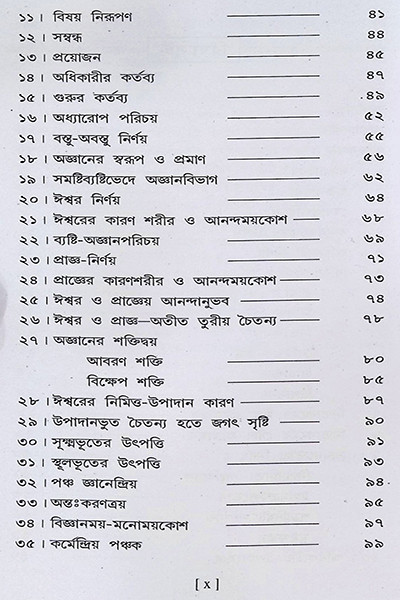 ১১। বিষয় নিরূপণ ৪১
১২। সম্বন্ধ ৪৪
১৩। প্রয়োজন ৪৫
১৪। অধিকারীর কর্তব্য ৪৭
১৫। গুরুর কর্তব্য ৪৯
১৬। অধ্যারোপ পরিচয় ৫২
১৭। বস্তু-অবস্তু নির্ণয় ৫৫
১৮। অজ্ঞানের স্বরূপ ও প্রমাণ ৫৬
১৯। সমষ্টিব্যষ্টিভেদে অজ্ঞানবিভাগ ৬২
২০। ঈশ্বর নির্ণয় ৬৪
২১। ঈশ্বরের কারণ শরীর ও আনন্দময়কোশ ৬৮
২২। ব্যষ্টি-অজ্ঞানপরিচয় ৬৯
২৩। প্রাজ্ঞ-নির্ণয় ৭১
২৪। প্রাজ্ঞের কারণশরীর ও আনন্দময়কোশ ৭৩
২৫। ঈশ্বর ও প্রাজ্ঞেয় আনন্দানুভব ৭৪
২৬। ঈশ্বর ও প্রাজ্ঞ—অতীত তুরীয় চৈতন্য ৭৮
২৭। অজ্ঞানের শক্তিদ্বয়
আবরণ শক্তি ৮০
বিক্ষেপ শক্তি ৮৫
২৮। ঈশ্বরের নিমিত্ত-উপাদান কারণ ৮৭
২৯। উপাদানভুত চৈতন্য হতে জগৎ সৃষ্টি ৯০
৩০। সূক্ষ্মভূতের উৎপত্তি ৯১
৩১। স্থূলভূতের উৎপত্তি ৯৩
৩২। পঞ্চ জ্ঞানেন্দ্রিয় ৯৪
৩৩। অন্তঃকরণত্রয় ৯৫
৩৪। বিজ্ঞানময়-মনোময়কোশ ৯৭
৩৫। কর্মেন্দ্রিয় পঞ্চক ৯৯
[ x ]